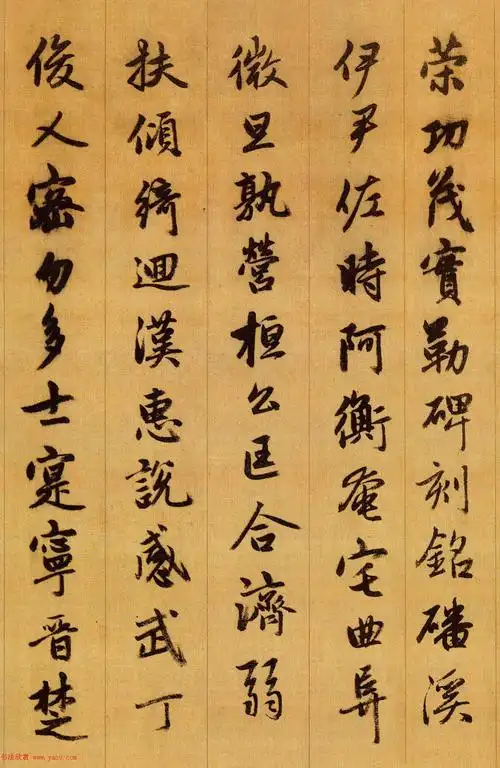 策功茂實勒碑刻銘磻溪
伊尹佐時阿衡奄宅曲阜
微旦孰營桓公匡合濟弱
扶傾綺迴漢惠說感武丁
俊乂密勿多士寔寧晉楚
书法欣赏 www.yac8.com